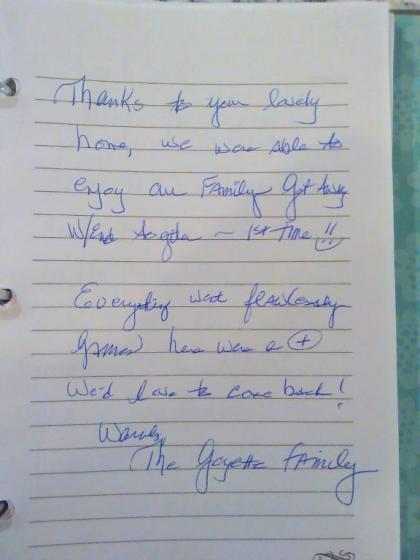 Thanks to your lovely
home, we were able to
enjoy our Family Get Away
W/End together – 1st Time !!
Everything went flawlessly
Games here were a +
We'd love to come back!
Warmly,
The Goyette Family